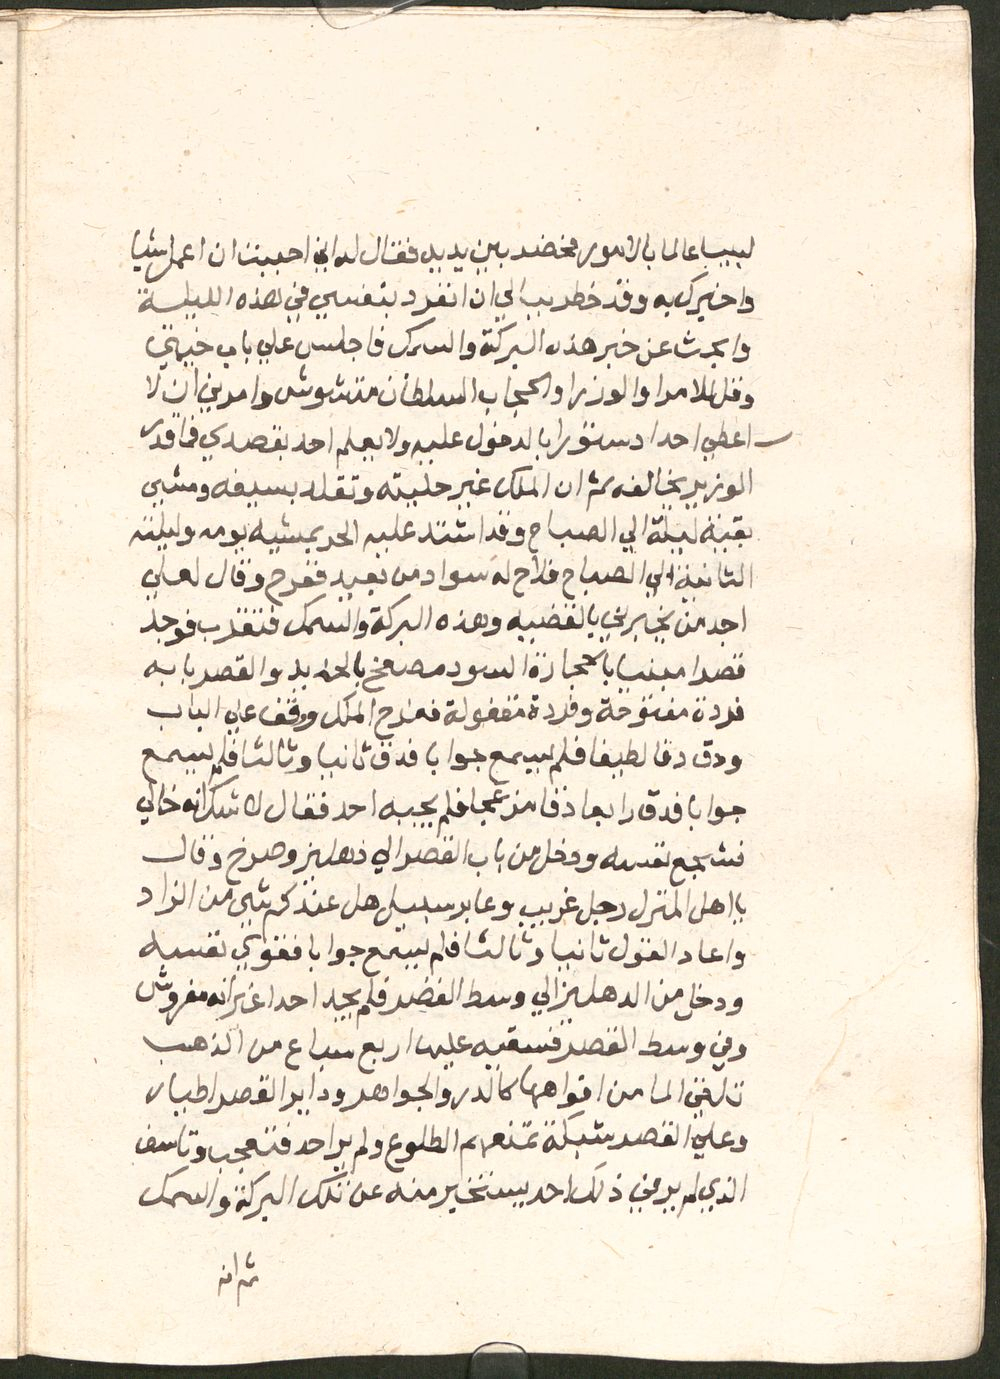 لبيبا عالما بالامور فحضر بين يديه فقال له اني احببت ان اعمل شيا
واخبرك به وقد خطر ببالي ان انفرد بنفسي في هذه الليلة
وابحث عن خبر هذه البركة والسمك فاجلس علي باب خيمتي
وقل للامرا والوزرا والحجاب السلطان متشوش وامرني ان لا
اعطي احدا دستورا بالدخول عليه ولا يعلم احد بقصدي فما قدر
الوزير يخالفه ثم ان الملك غير حليته وتقلد بسيفه ومشي
بقية ليلة الي الصباح وقد اشتد عليه الحر بمشيه يومه وليلته
الثانية الي الصباح فلاح له سواد من بعيد ففرح وقال لعلي
اجد من يخبرني بالقضيه وهذه البركة والسمك فتقرب فوجد
قصرا مبنيا بالحجارة السود مصفح بالحديد والقصر بابه
فردة مفتوحة وفردة مقفولة ففرح الملك ووقف علي الباب
ودق دقا لطيفا فلم يسمع جوابا فدق ثانيا وثالثا فلم يسمع
جوابا فدق رابعا دقا مزعجا فلم يجبه احد فقال لا شك انه خالي
فشجع نفسه ودخل من باب القصر الي دهليز وصرخ وقال
يا اهل المنزل رجل غريب وعابر سبيل هل عندكم شي من الزاد
واعاد القول ثانيا وثالثا فلم يسمع جوابا فقوي نفسه
ودخل من الدهليز الي وسط القصر فلم يجد احدا غير انه مفروش
وفي وسط القصر فسقيه عليها اربع سباع من الذهب
تلقي الما من افواهها كالدر والجواهر وداير القصر اطيار
وعلي القصر شبكة تمنعهم الطلوع ولم ير احد فتعجب وتاسف
الذي لم ير في ذلك احد يستخبر منه عن تلك البركة والسمك
ثم انه